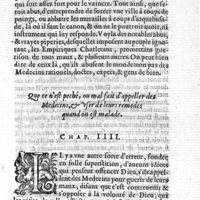 qui soit assez fort pour le vaincre. Tout ainsi, se seroit
abus, d'entreprendre de forcer vne ville à coups de
poings, ou abbatre les murailles à coups d'arquebouse,
là, où il faut le canon, & en où il ne pourroit auoir
instrument qui luy responde. Voyla des notables abus,
& vrayes piperies, desquelles imposent au peuple ignorant,
les Empiriques Charletans, promettans
risons de tous maux, & plusieurs autres. On pourroit bien
dire de cela, qu'ils abusent le monde: non pas des
Medecins rationels, doctes, expers, & gens de bien.
Que ce n'est peché, ou mal fait d'appeller des
Medecins, & vser de leurs remedes
quand on est malade.
CHAP. IIII.
IL y a vne autre sorte d'erreur, fondee
en folle superstition, d'aucuns idiots
qui pensent offenser Dieu, s'ils appellent
des Medecins pour guerir de leurs
maladies, disans que c'est contreuenir &
s'opposer à la volonté de Dieu,